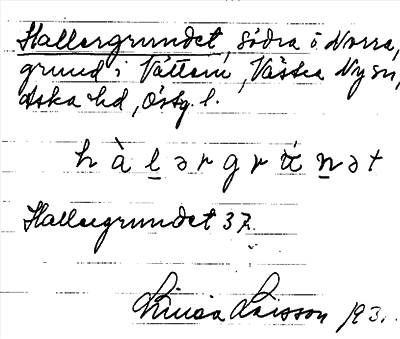 Hallergrundet, södra ö Norra,
grund i Vättern, Västra Ny sn,
Aska hd, Östg. l.
h à l ə r g r ú n ə t
Hallergrundet 37.
Linnéa Larsson 193.